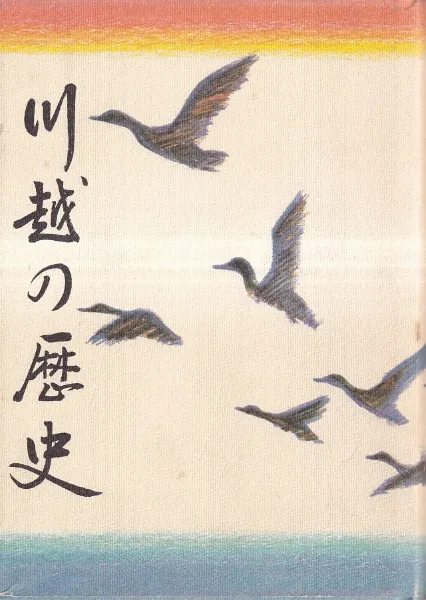 川越の歴史